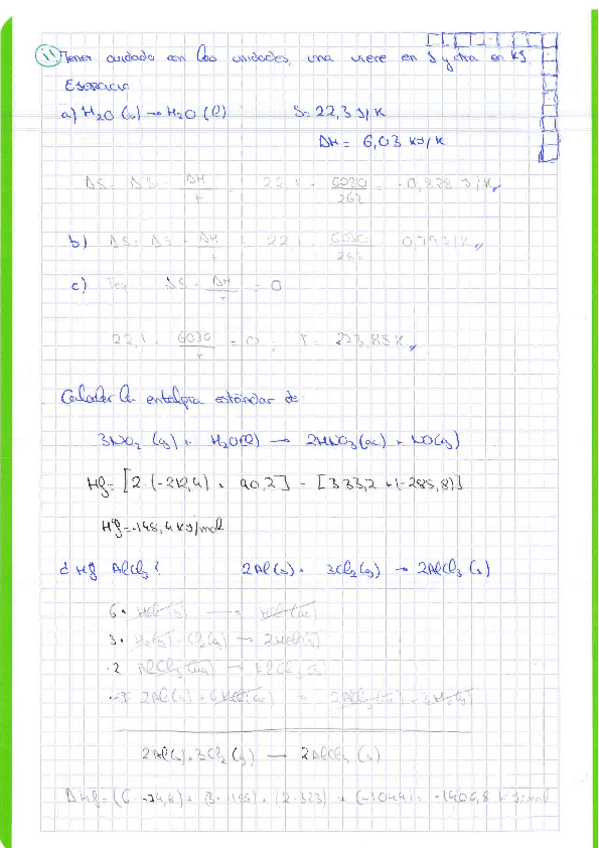 ¡¡ Tener cuidado con las unidades, una viene en J y otra en KJ
Ejercicio
a) H₂O (s) → H₂O (l) S = 22,3 J/K
ΔH = 6,03 KJ/K
ΔS = ΔS - ΔH/T = 22,1 - 6030/262 = -0,838 J/K
b) ΔS = ΔS - ΔH/T = 22,1 - 6030/
c) ΔS - ΔH/T = 0
22,1 - 6030/T = 0; T = 273,85 K
Calcular la entalpia estándar de:
3NO₂ (g) + H₂O(l) → 2HNO₃(ac) + NO(g)
Hf = [2·(-212,4) + 90,2] - [3·33,2 + (-285,8)]
Hf = -148,4 KJ/mol
¿ Hf AlCl₃? 2Al(s) + 3Cl₂(g) → 2AlCl₃(s)
6· HCl(g) → HCl(ac)
3· H₂(g) + Cl₂(g) → 2HCl(g)
2 AlCl₃(ac) → AlCl₃(s)
2Al(s) + 6HCl(ac) = 2AlCl₃(ac) + 3H₂(g)
2Al(s) + 3Cl₂(g) → 2AlCl₃(s)
ΔHf = (6·-74,8) + (3·-185) + (2·323) + (-1049) = -1406,8 KJ/mol